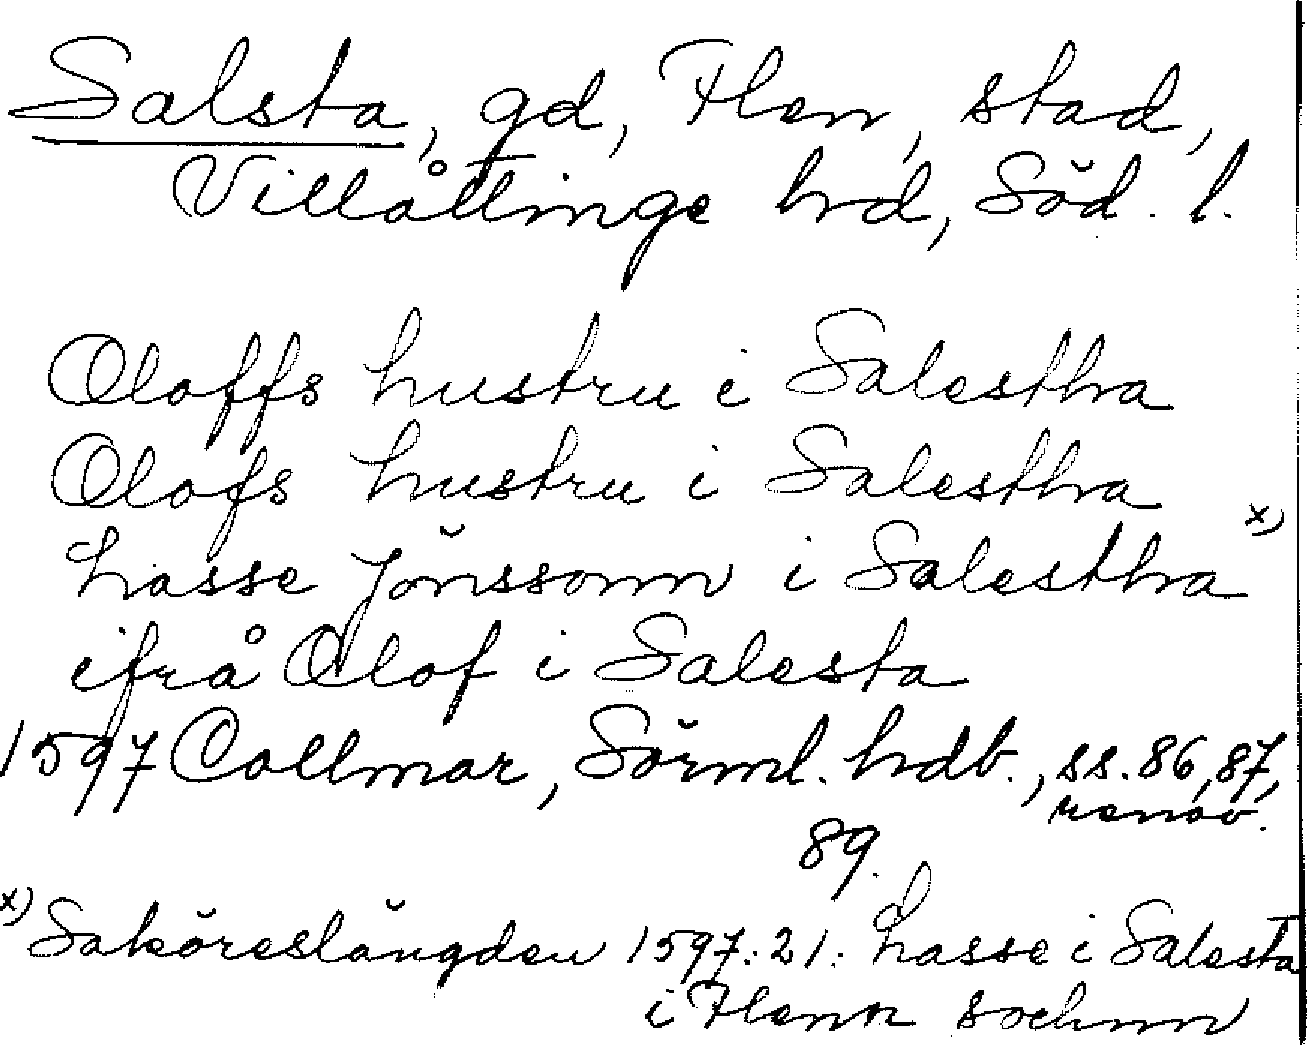 Salsta, gd, Flen, stad,
Villåttinge hrd, Söd. l.
Oloffs hustru i Salestha
Olofs hustru i Salestha
Lasse Jönssonn i Salestha x)
ifrå Olof i Salesta
1597 Collmar, Sörml. hdb., ss. 86, 87,
renov.
89.
x) Saköreslängden 1597:21: Lasse i Salesta
i Flenn sochnn